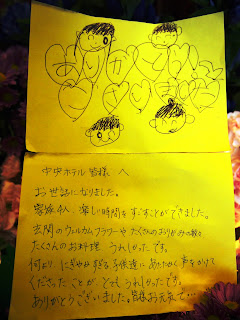 ありがとうござ
いました
中央ホテル皆様へ
お世話になりました。
家族4人、楽しい時間をすごすことができました。
玄関のウェルカムフラワーや たくさんのおりがみの数々
たくさんのお料理 うれしかったです。
何より にぎやかすぎる子供達に あたたかく声をかけて
くださったことが、とてもうれしかったです。
ありがとうございました。皆様お元気で…